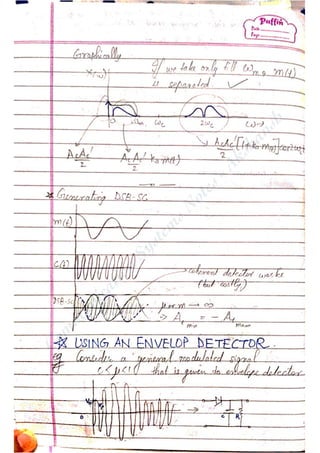 Puffin
Date
Page
Graphically
If we take only till ωm, m(t)
is separated
0 ωm ωc 2ωc (ω→)
AcAc'/2
AcAc'/2 Ka m(t)
AcAc'/2 [1+Ka m(t)] cos2ωct
* Generating DSB-SC
m(t)
c(t)
coherent detector works
(but costly)
DSB-SC
μ or m → ∞
⇒ Amin = - Amax
☆ USING AN ENVELOP DETECTOR.
eg Consider a general modulated signal
0<μ<1 that is given to envelope detector
0
C R